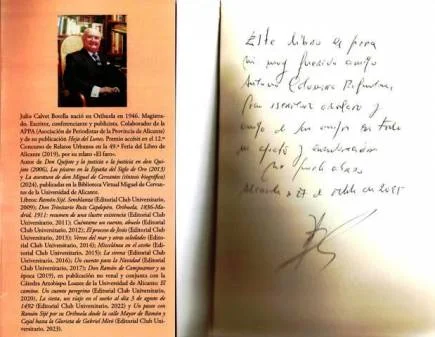 Julio Calvet Botella nació en Orihuela en 1946. Magistra-
do. Escritor, conferenciante y publicista. Colaborador de la
APPA (Asociación de Periodistas de la Provincia de Alicante)
y de su publicación Hoja del Lunes. Premio accésit en el 12.º
Concurso de Relatos Urbanos en la 49.ª Feria del Libro de
Alicante (2019), por su relato «El faro».
Autor de Don Quijote y la justicia o la justicia en don Qui-
jote (2006), Los pícaros en la España del Siglo de Oro (2013)
y La aventura de don Miguel de Cervantes (síntesis biográfica)
(2024), publicadas en la Biblioteca Virtual Miguel de Cervan-
tes de la Universidad de Alicante.
Libros: Ramón Sijé. Semblanza (Editorial Club Universitario,
2009); Don Trinitario Ruiz Capdepón. Orihuela, 1836-Ma-
drid, 1911: resumen de una ilustre existencia (Editorial Club
Universitario, 2011); Cuéntame un cuento, abuelo (Editorial
Club Universitario, 2012); El proceso de Jesús (Editorial Club
Universitario, 2013); Versos del mar y otras soledades (Edito-
rial Club Universitario, 2014); Miscelánea en el otoño (Edi-
torial Club Universitario, 2015); La sirena (Editorial Club
Universitario, 2016); Un cuento para la Navidad (Editorial
Club Universitario, 2017); Don Ramón de Campoamor y su
época (2019), en publicación no venal y conjunta con la
Cátedra Arzobispo Loazes de la Universidad de Alicante; El
camino. Un cuento peregrino (Editorial Club Universitario,
2020), La siesta, un viaje en el sueño al día 3 de agosto de
1492 (Editorial Club Universitario, 2022) y Un paseo con
Ramón Sijé por su Orihuela desde la calle Mayor de Ramón y
Cajal hasta la Glorieta de Gabriel Miró (Editorial Club Uni-
versitario, 2023).
Este libro es para
mi muy querido amigo
Antonio
escritor y
amigo de con todo
mi afecto y
un fuerte abrazo
Alicante a 27 de